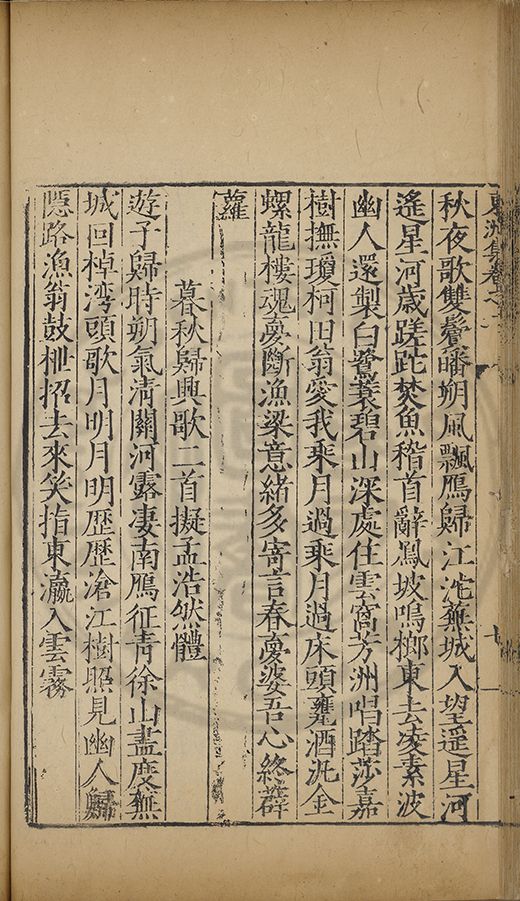 東洲集卷之
秋夜歌雙鬢皤朔風飄鴈歸江沱蕪城入望遥星河
遥星河歲蹉跎焚魚稽首辭鳳坡鳴榔東去凌素波
幽人還製白鷺蓑碧山深處住雲窩芳洲唱踏莎嘉
樹撫瓊柯田翁愛我乘月過乘月過床頭甕酒泚金
螺龍樓魂夢斷漁梁意緒多寄言春夢婆吾心終薜
蘿
暮秋歸興歌二首擬孟浩然體
遊子歸時朔氣清關河露凄南鴈征青徐山盡廣無
城回棹湾頭歌月明月明歴歴滄江樹照見幽人歸
隱路漁翁鼓枻招去來笑指東瀛入雲霧